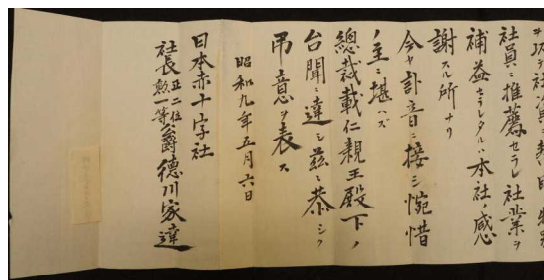 社員ニ推薦セラレ社業ヲ
補益セラレタルハ本社ノ感
謝スル所ナリ
今ヤ訃音ニ接シ惋惜
ノ主ニ堪ヘズ
總裁載仁親王殿下ノ
台聞ニ達シ茲ニ恭シク
弔意ヲ表ス
昭和九年五月六日
日本赤十字社
社長正二位勲一等公爵德川家達